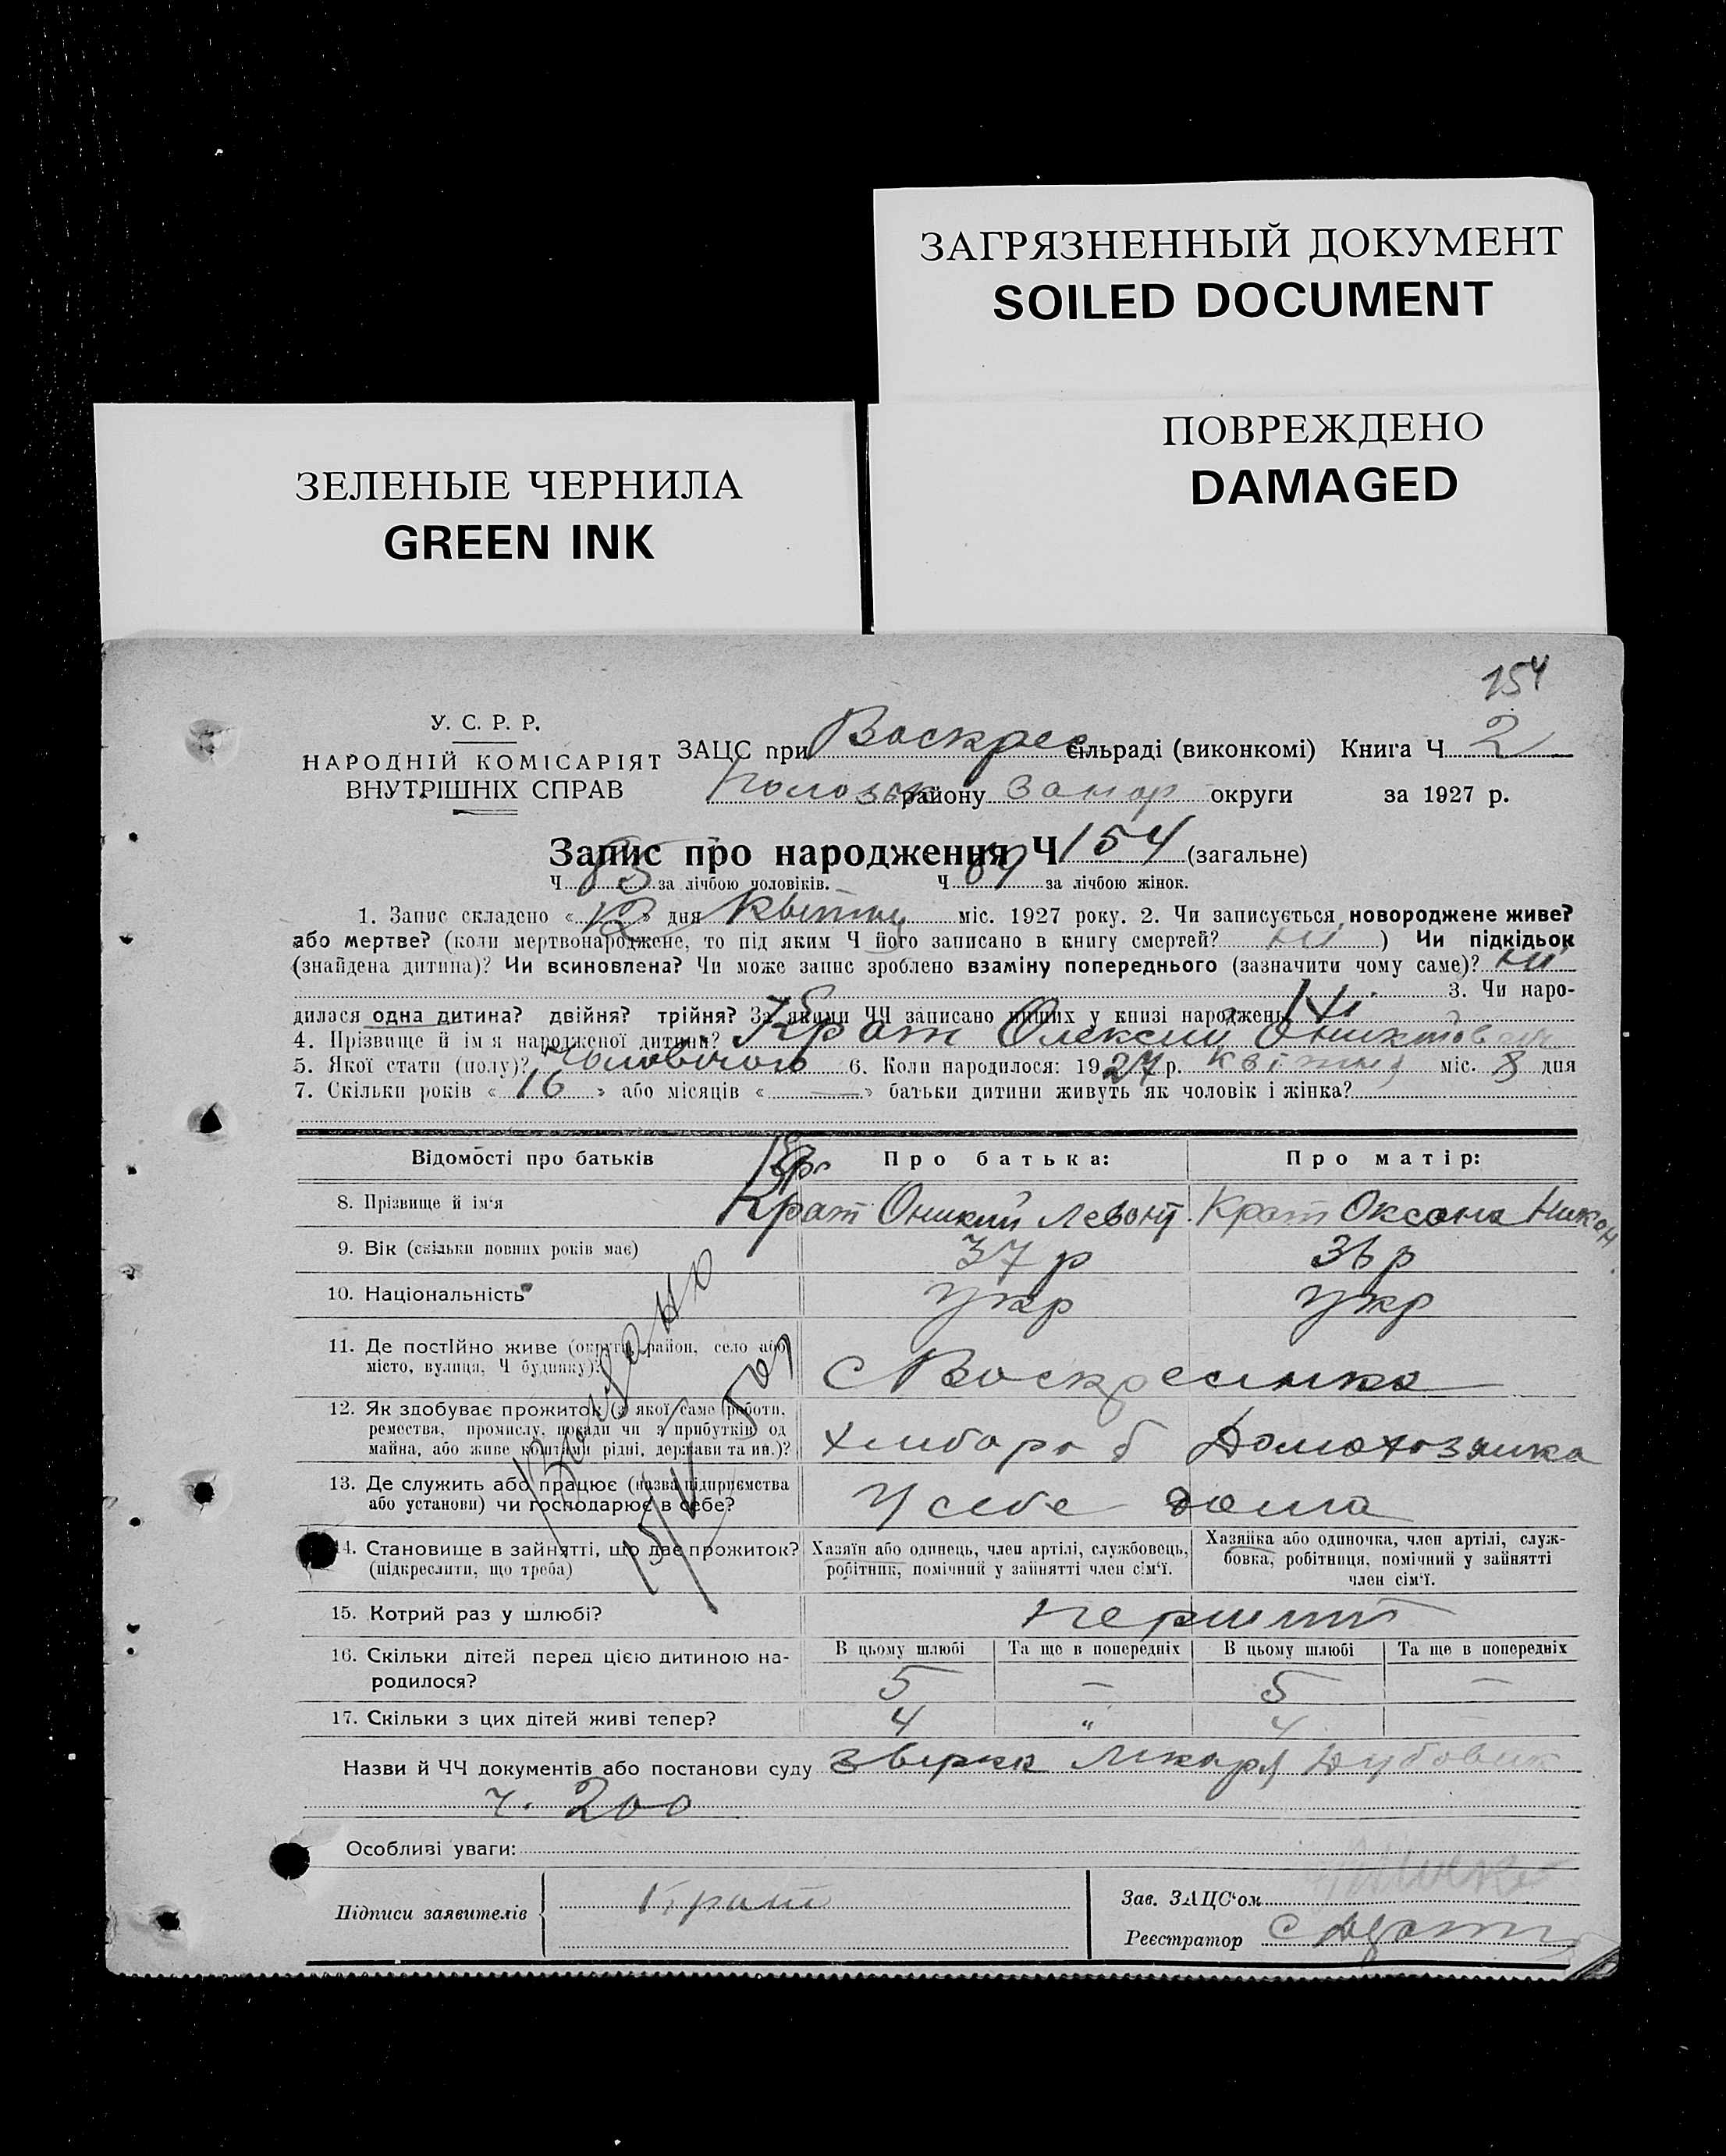 ЗАГРЯЗНЕННЫЙ ДОКУМЕНТ
SOILED DOCUMENT
ПОВРЕЖДЕНО
DAMAGED
ЗЕЛЕНЫЕ ЧЕРНИЛА
GREEN INK
154
У. С. Р. Р.
НАРОДНІЙ КОМІСАРІЯТ
ВНУТРІШНІХ СПРАВ
ЗАЦС при Воскрес сільраді (виконкомі) Книга Ч. 2
району Запор округи за 1927 р.
Запис про народження Ч 154 (загальне)
Ч. 85 за лічбою чоловіків. Ч. 69 за лічбою жінок.
1. Запис складено « 12 » дня Квітня міс. 1927 року. 2. Чи записується новороджене живе?
або мертве? (коли мертвонароджене, то під яким Ч його записано в книгу смертей? ні ) Чи підкідьок
(знайдена дитина)? Чи всиновлена? Чи може запис зроблено взаміну попереднього (зазначити чому саме)? ні
3. Чи наро-
дилася одна дитина? двійня? трійня? За якими ЧЧ записано инших у книзі народжень Ні.
4. Прізвище й ім'я народженої дитини? Крат Олексій
5. Якої стати (полу)? Чоловічого 6. Коли народилося: 1927 р. квітня міс. 8 дня
7. Скільки років « 16 » або місяців « — » батьки дитини живуть як чоловік і жінка?
Відомості про батьків Про батька: Про матір:
8. Прізвище й ім'я Крат Оникій Левонт. Крат Оксана Никон
9. Вік (скільки повних років має) 37 р 36 р
10. Національність Укр Укр
11. Де постійно живе (округа, район, село або
місто, вулиця, Ч будинку)? с Воскресинка
12. Як здобуває прожиток (з якої саме роботи,
ремества, промислу, посади чи з прибутків од
майна, або живе коштами рідні, держави та ин.)? Хлібороб Домохозяика
13. Де служить або працює (назва підприємства
або установи) чи господарює в себе? У себе дома
14. Становище в зайнятті, що дає прожиток?
(підкреслити, що треба)
Хазяїн або одинець, член артілі, службовець,
робітник, помічний у зайнятті член сім'ї.
Хазяйка або одиночка, член артілі, служ-
бовка, робітниця, помічний у зайнятті
член сім'ї.
15. Котрий раз у шлюбі? перший
16. Скільки дітей перед цією дитиною на-
родилося?
В цьому шлюбі Та ще в попередніх В цьому шлюбі Та ще в попередніх
5 — 5 —
17. Скільки з цих дітей живі тепер? 4 " 4 —
Назви й ЧЧ документів або постанови суду Лікаря Дубовик
ч. 200
Особливі уваги:
Підписи заявителів Крат
Зав. ЗАЦС'ом
Реєстратор